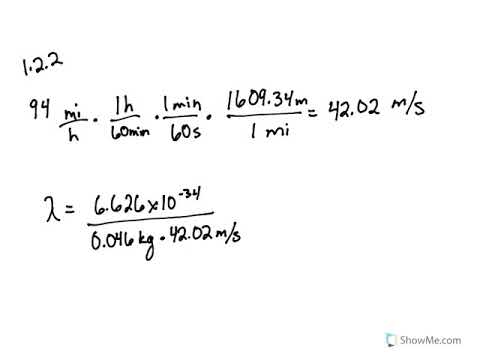 1.2.2
94 mi/h · 1h/60min · 1min/60s · 1609.34m/1 mi = 42.02 m/s
λ = 6.626×10⁻³⁴/0.046 kg · 42.02 m/s
ShowMe.com